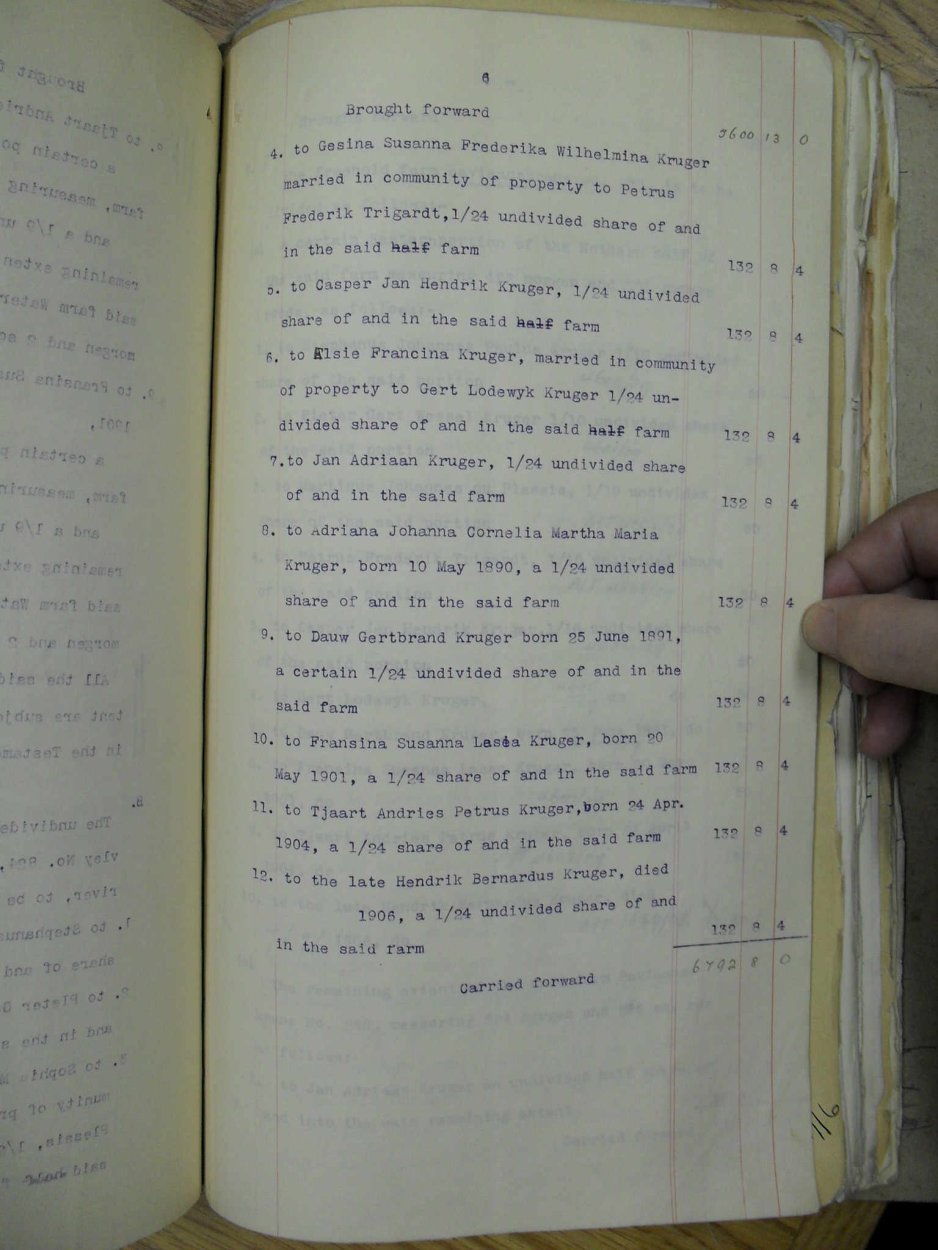 6
Brought forward 5600 13 0
4. to Gesina Susanna Frederika Wilhelmina Kruger
married in community of property to Petrus
Frederik Trigardt,1/24 undivided share of and
in the said half farm 132 8 4
5. to Casper Jan Hendrik Kruger, 1/24 undivided
share of and in the said half farm 132 8 4
6. to Elsie Francina Kruger, married in community
of property to Gert Lodewyk Kruger 1/24 un-
divided share of and in the said half farm 132 8 4
7.to Jan Adriaan Kruger, 1/24 undivided share
of and in the said farm 132 8 4
8. to Adriana Johanna Cornelia Martha Maria
Kruger, born 10 May 1890, a 1/24 undivided
share of and in the said farm 132 8 4
9. to Dauw Gertbrand Kruger born 25 June 1891,
a certain 1/24 undivided share of and in the
said farm 132 8 4
10. to Fransina Susanna Kruger, born 20
May 1901, a 1/24 share of and in the said farm 132 8 4
11. to Tjaart Andries Petrus Kruger,born 24 Apr.
1904, a 1/24 share of and in the said farm 132 8 4
12. to the late Hendrik Bernardus Kruger, died
1906, a 1/24 undivided share of and
in the said farm 132 8 4
Carried forward 6792 8 0
116